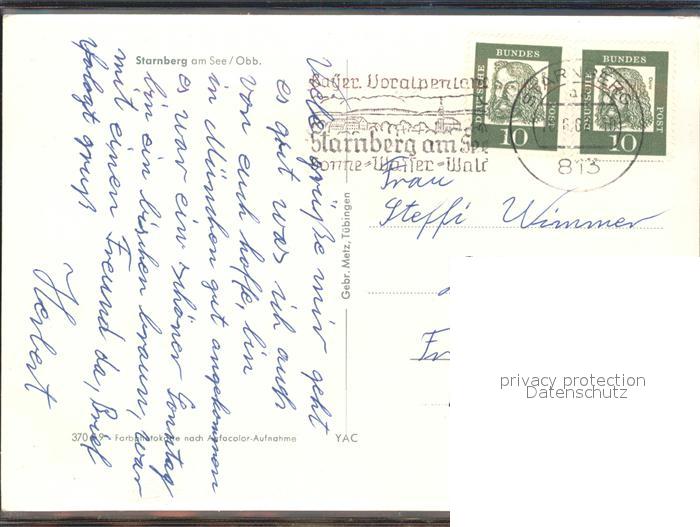 Starnberg am See / Obb.
Viele grüße mir geht
es gut was ich auch
von euch hoffe, bin
in München gut angekommen
es war ein schöner Sonntag
bin ein bischen braun, war
mit einen Freund da, Brief
folgt gruß
Herbert
370 9 Farbphotokarte nach Agfacolor-Aufnahme
YAC
Gebr. Metz, Tübingen
Bayer. Voralpenland
Starnberg am See
Sonne-Wasser-Wald
STARNBERG
813
DEUTSCHE BUNDESPOST
10
DEUTSCHE BUNDESPOST
10
Frau
Steffi Wimmer
Fr
privacy protection
Datenschutz